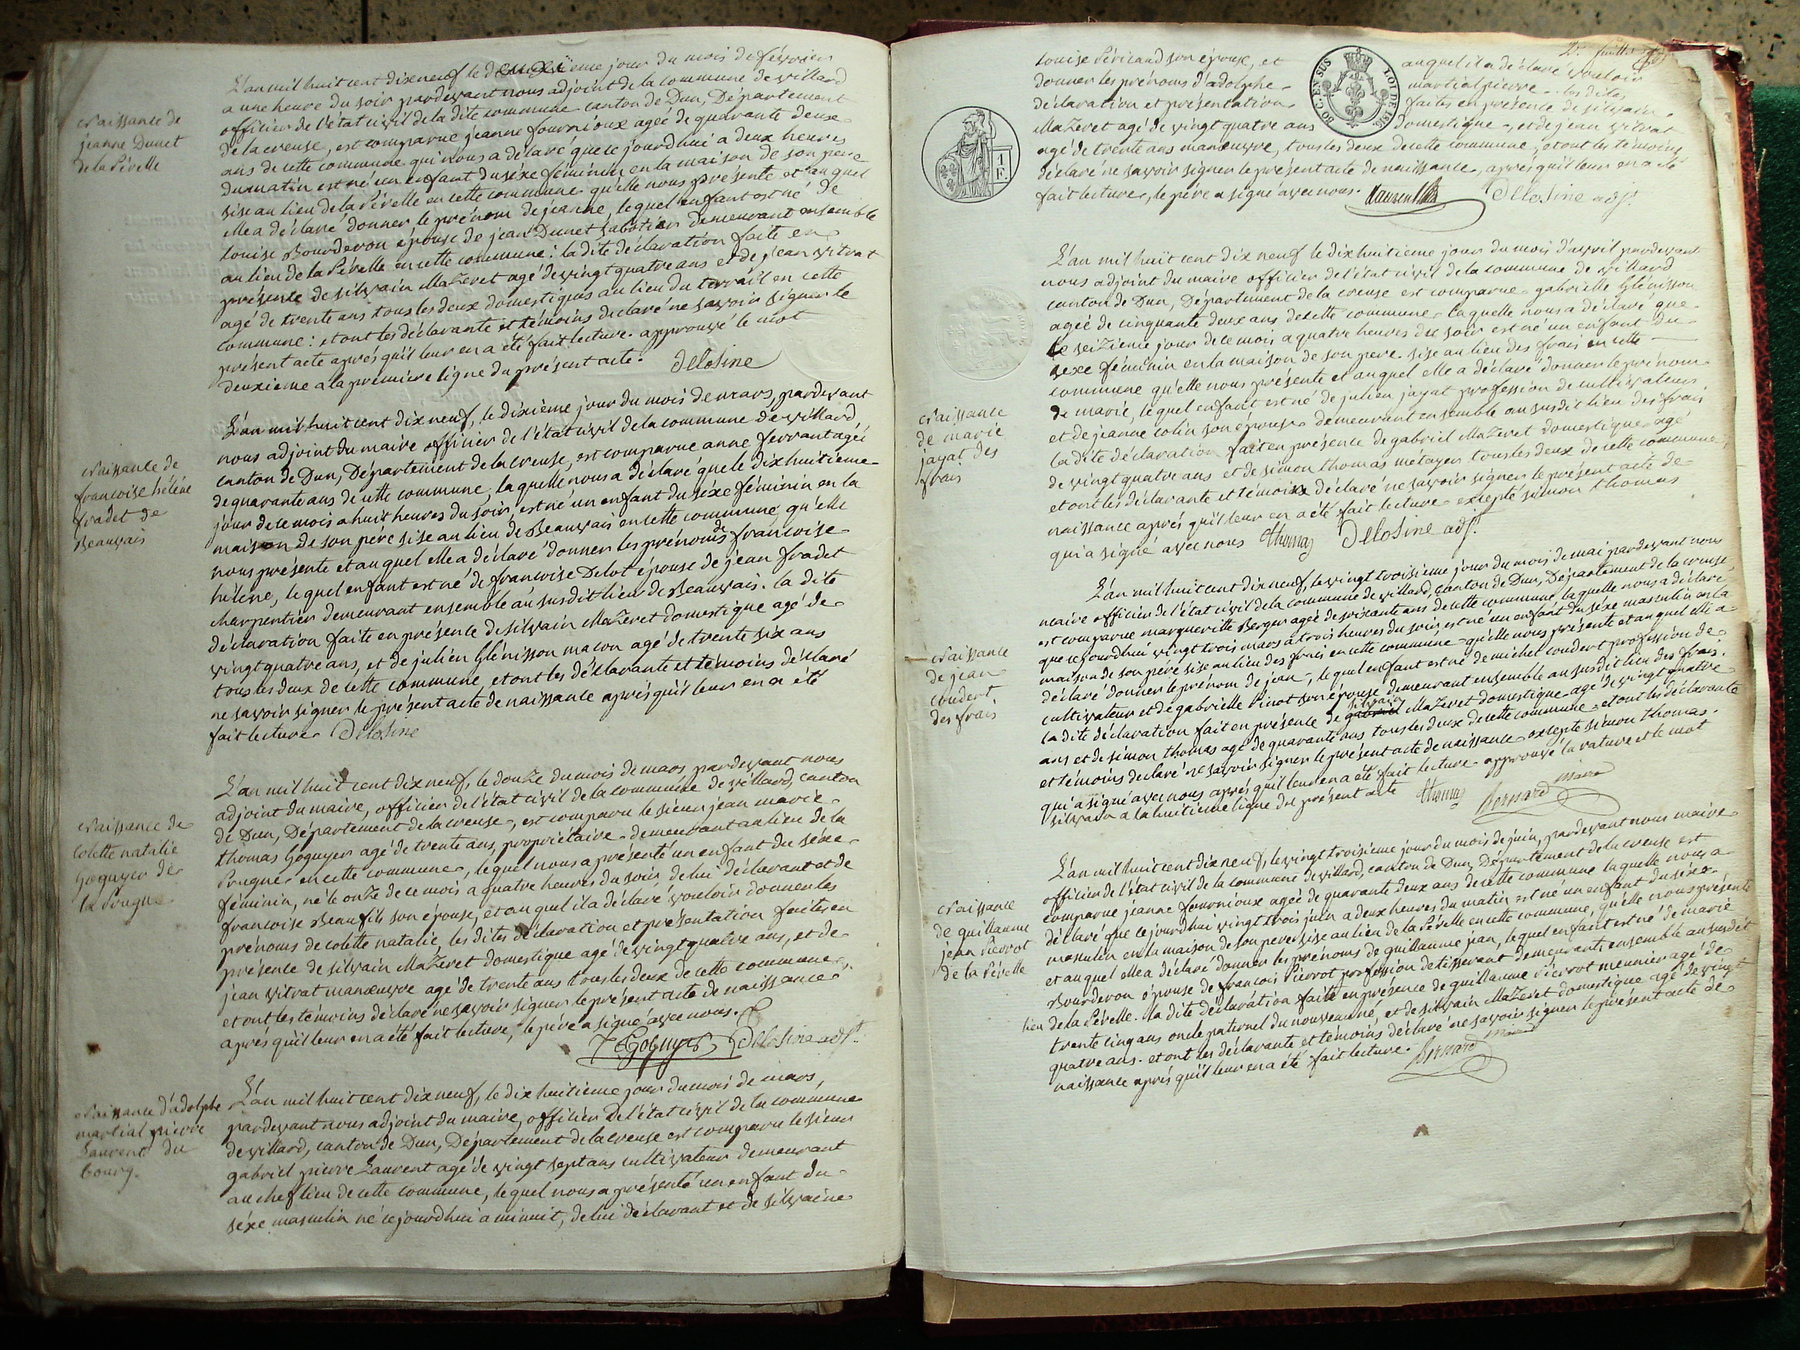 Naissance de
jeanne Dunet
de la Pérelle
L'an mil huit cent dix neuf le deuxième jour du mois de février
a une heure du soir pardevant nous adjoint de la commune de villard
officier de l'état civil de la dite commune canton de Dun, Département
de la creuse, est comparue jeanne fournioux agée de quarante deux
ans de cette commune qui nous a déclaré que ce jourd'hui a deux heures
du matin est né un enfant du séxe féminin en la maison de son père
sise au lieu de la Pérelle en cette commune qu'elle nous présente et auquel
elle a déclaré donner le prénom de jeanne, lequel enfant est né de
louise Bourderon épouse de jean Dunet sabotier demeurant ensemble
au lieu de la Pérelle en cette commune: la dite déclaration faite en
présente de silvain Mazeret agé de vingt quatre ans et de jean vitrat
agé de trente ans tous les deux domestiques au lieu du terrail en cette
commune: et ont les déclarante et témoins déclaré ne savoir signer le
présent acte après qu'il leur en a été fait lecture. approuvé le mot
deuxième a la première ligne du présent acte. Delosine
Naissance de
francoise hélène
fradet de
Beauvais
L'an mil huit cent dix neuf, le dixième jour du mois de mars, pardevant
nous adjoint du maire officier de l'état civil de la commune de villard
canton de Dun, Département de la creuse, est comparue anne ferrant agée
de quarante ans de cette commune, laquelle nous a déclaré que le dix huitième
jour de ce mois a huit heures du soir, est né un enfant du séxe féminin en la
maison de son père sise au lieu de Beauvais en cette commune qu'elle
nous présente et auquel elle a déclaré donner les prénoms de francoise
hélène, lequel enfant est né de francoise Delot épouse de jean fradet
charpentier demeurant ensemble au susdit lieu de Beauvais. la dite
déclaration faite en présente de silvain Mazeret domestique agé de
vingt quatre ans, et de julien Glénisson macon agé de trente six ans
tous les deux de cette commune, et ont les déclarante et témoins déclaré
ne savoir signer le présent acte de naissance après qu'il leur en a été
fait lecture Delosine
Naissance de
Colette natalie
Goguyer de
la Prugne
L'an mil huit cent dix neuf, le douze du mois de mars, pardevant nous
adjoint du maire, officier de l'état civil de la commune de villard, canton
de Dun, Département de la creuse, est comparu le sieur jean marie
thomas Goguyer agé de trente ans, propriétaire demeurant au lieu de la
Prugne en cette commune, lequel nous a présenté un enfant du séxe
féminin, né le onze de ce mois a quatre heures du soir, de lui déclarant et de
francoise Beaufils son épouse, et auquel il a déclaré vouloir donner les
prénoms de colette natalie, les dites déclaration et présentation faites en
présente de silvain Mazeret domestique agé de vingt quatre ans, et de
jean vitrat manœuvre agé de trente ans tous les deux de cette commune,
et ont les témoins déclaré ne savoir signer le présent acte de naissance
après qu'il leur en a été fait lecture, le père a signé avec nous.
Goguyer Delosine adjt.
Naissance d'adolphe
martial pierre
Laurent du
bourg.
L'an mil huit cent dix neuf, le dix huitième jour du mois de mars,
pardevant nous adjoint du maire, officier de l'état civil de la commune
de villard, canton de Dun, Département de la creuse est comparu le sieur
gabriel pierre Laurent agé de vingt sept ans cultivateur demeurant
au chef lieu de cette commune, lequel nous a présenté un enfant du
séxe masculin né ce jourd'hui a minuit, de lui déclarant et de silvaine
2e feuillet
louise Péricaud son épouse, et auquel il a déclaré vouloir
donner les prénoms d'adolphe martial pierre. les dites
déclaration et présentation faites en présence de silvain
Mazeret agé de vingt quatre ans domestique, et de jean vitrat
agé de trente ans manœuvre, tous les deux de cette commune, et ont les témoins
déclaré ne savoir signer le présent acte de naissance, après qu'il leur en a été
fait lecture, le père a signé avec nous. Laurent Delosine adjt.
1
F.
Naissance
de marie
jayat des
frais
L'an mil huit cent dix neuf le dix huitieme jour du mois d'avril pardevant
nous adjoint du maire officier de l'état civil de la commune de villard
canton de Dun, Département de la creuse est comparue gabrielle Glénisson
agée de cinquante deux ans de cette commune laquelle nous a déclaré que
le seizième jour de ce mois a quatre heures du soir est né un enfant du
sexe féminin en la maison de son pere sise au lieu des frais en cette
commune qu'elle nous présente et auquel elle a déclaré donner le prénom
de marie, lequel enfant est né de julien jayat profession de cultivateur
et de jeanne colin son épouse demeurant ensemble au susdit lieu des frais
la dite déclaration fait en présence de gabriel Mazeret domestique agé
de vingt quatre ans et de simon thomas métayer tous les deux de cette commune,
et ont les déclarante et témoins déclaré ne savoir signer le présent acte de
naissance après qu'il leur en a été fait lecture excepté simon thomas
qui a signé avec nous thomas Delosine adjt.
Naissance
de jean
coudert
des frais
L'an mil huit cent dix neuf, le vingt troisième jour du mois de mai pardevant nous
maire officier de l'état civil de la commune de villard, canton de Dun, Département de la creuse
est comparue margueritte Berger agée de soixante ans de cette commune laquelle nous a déclaré
que ce jourd'hui vingt trois mars a trois heures du soir est né un enfant du séxe masculin en la
maison de son pere sise au lieu des frais en cette commune qu'elle nous présente et auquel elle a
déclaré donner le prénom de jean, lequel enfant est né de michel coudert profession de
cultivateur et de gabrielle Pinot son épouse demeurant ensemble au susdit lieu des frais.
la dite déclaration fait en présence de gabriel silvain Mazeret domestique agé de vingt quatre
ans et de simon thomas agé de quarante ans tous les deux de cette commune et ont les déclarante
et témoins déclaré ne savoir signer le présent acte de naissance excepté simon thomas.
qui a signé avec nous après qu'il leur en a été fait lecture approuvé la rature et le mot
silvain a la huitième ligne du présent acte thomas Bernard maire
Naissance
de guillaume
jean Pierrot
de la Pérelle
L'an mil huit cent dix neuf le vingt troisième jour du mois de juin, pardevant nous maire
officier de l'état civil de la commune de villard, canton de Dun, Département de la creuse est
comparue jeanne fournioux agée de quarante deux ans de cette commune laquelle nous a
déclaré que ce jourd'hui vingt trois juin a deux heures du matin est né un enfant du séxe
masculin en la maison de son pere sise au lieu de la Pérelle en cette commune, qu'elle nous présente
et auquel elle a déclaré donner les prénoms de guillaume jean, lequel enfant est né de marie
Bourderon épouse de francois Pierrot profession de tisserant demeurant ensemble au susdit
lieu de la Pérelle. la dite déclaration faite en présence de guillaume Pierrot meunier agé de
trente cinq ans oncle paternel du nouveau né, et de silvain Mazeret domestique agé de vingt
quatre ans. et ont les déclarante et témoins déclaré ne savoir signer le présent acte de
naissance après qu'il leur en a été fait lecture. Bernard maire